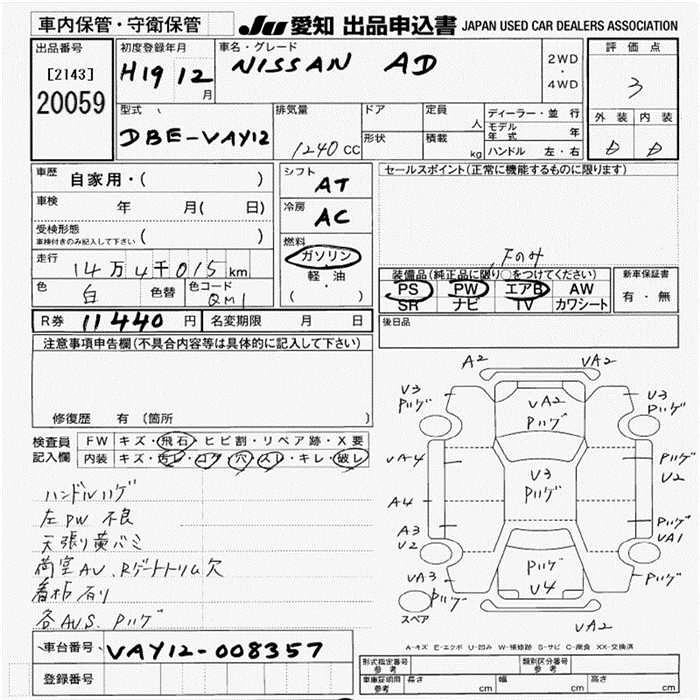 車内保管・守衛保管
JU 愛知 出品申込書 JAPAN USED CAR DEALERS ASSOCIATION
出品番号
[2143]
20059
初度登録年月
H19 12
月
車名・グレード
NISSAN AD
2WD
・
4WD
評価点
3
外装 内装
D D
型式
DBE-VAY12
排気量
1240 CC
ドア
形状
定員
人
積載
kg
ディーラー・並行
モデル年式 年
ハンドル 左・右
車歴
自家用・( )
車検 年 月( 日)
受検形態
車検付きのみ記入して下さい ( )
走行
14万4千015km
色 白 色替 色コード QM1
シフト
AT
冷房
AC
燃料
ガソリン
軽・油
( )
セールスポイント(正常に機能するものに限ります)
Fのみ
装備品(純正品に限り○をつけてください)
PS PW エアB AW
SR ナビ TV カワシート
新車保証書
有・無
R券 11440 円 名変期限 月 日
後日品
注意事項申告欄(不具合内容等は具体的に記入して下さい)
修復歴 有 (箇所 )
検査員
記入欄
FW キズ・飛石・ヒビ割・リペア跡・X要
内装 キズ・汚レ・コゲ・穴・スレ・キレ・破レ
ハンドルハゲ
左PW 不良
天張り黄バミ
荷室AU、Rゲートトリム欠
看板有り
各AUS、Pハゲ
A2
VA2
V3
Pハゲ
VA2
Pハゲ
V3
Pハゲ
VA4
V3
Pハゲ
Pハゲ
V2
A4
A3
V2
Pハゲ
VA1
VA3
Pハゲ
Pハゲ
V4
Pハゲ
スペア
VA2
A-キズ E-エクボ U-凹み W-補修跡 S-サビ C-腐食 XX-交換済
車台番号 VAY12-008357
登録番号
形式指定番号
参考
類別区分番号
参考
車庫証明用
参考
長さ cm 幅 cm 高さ cm